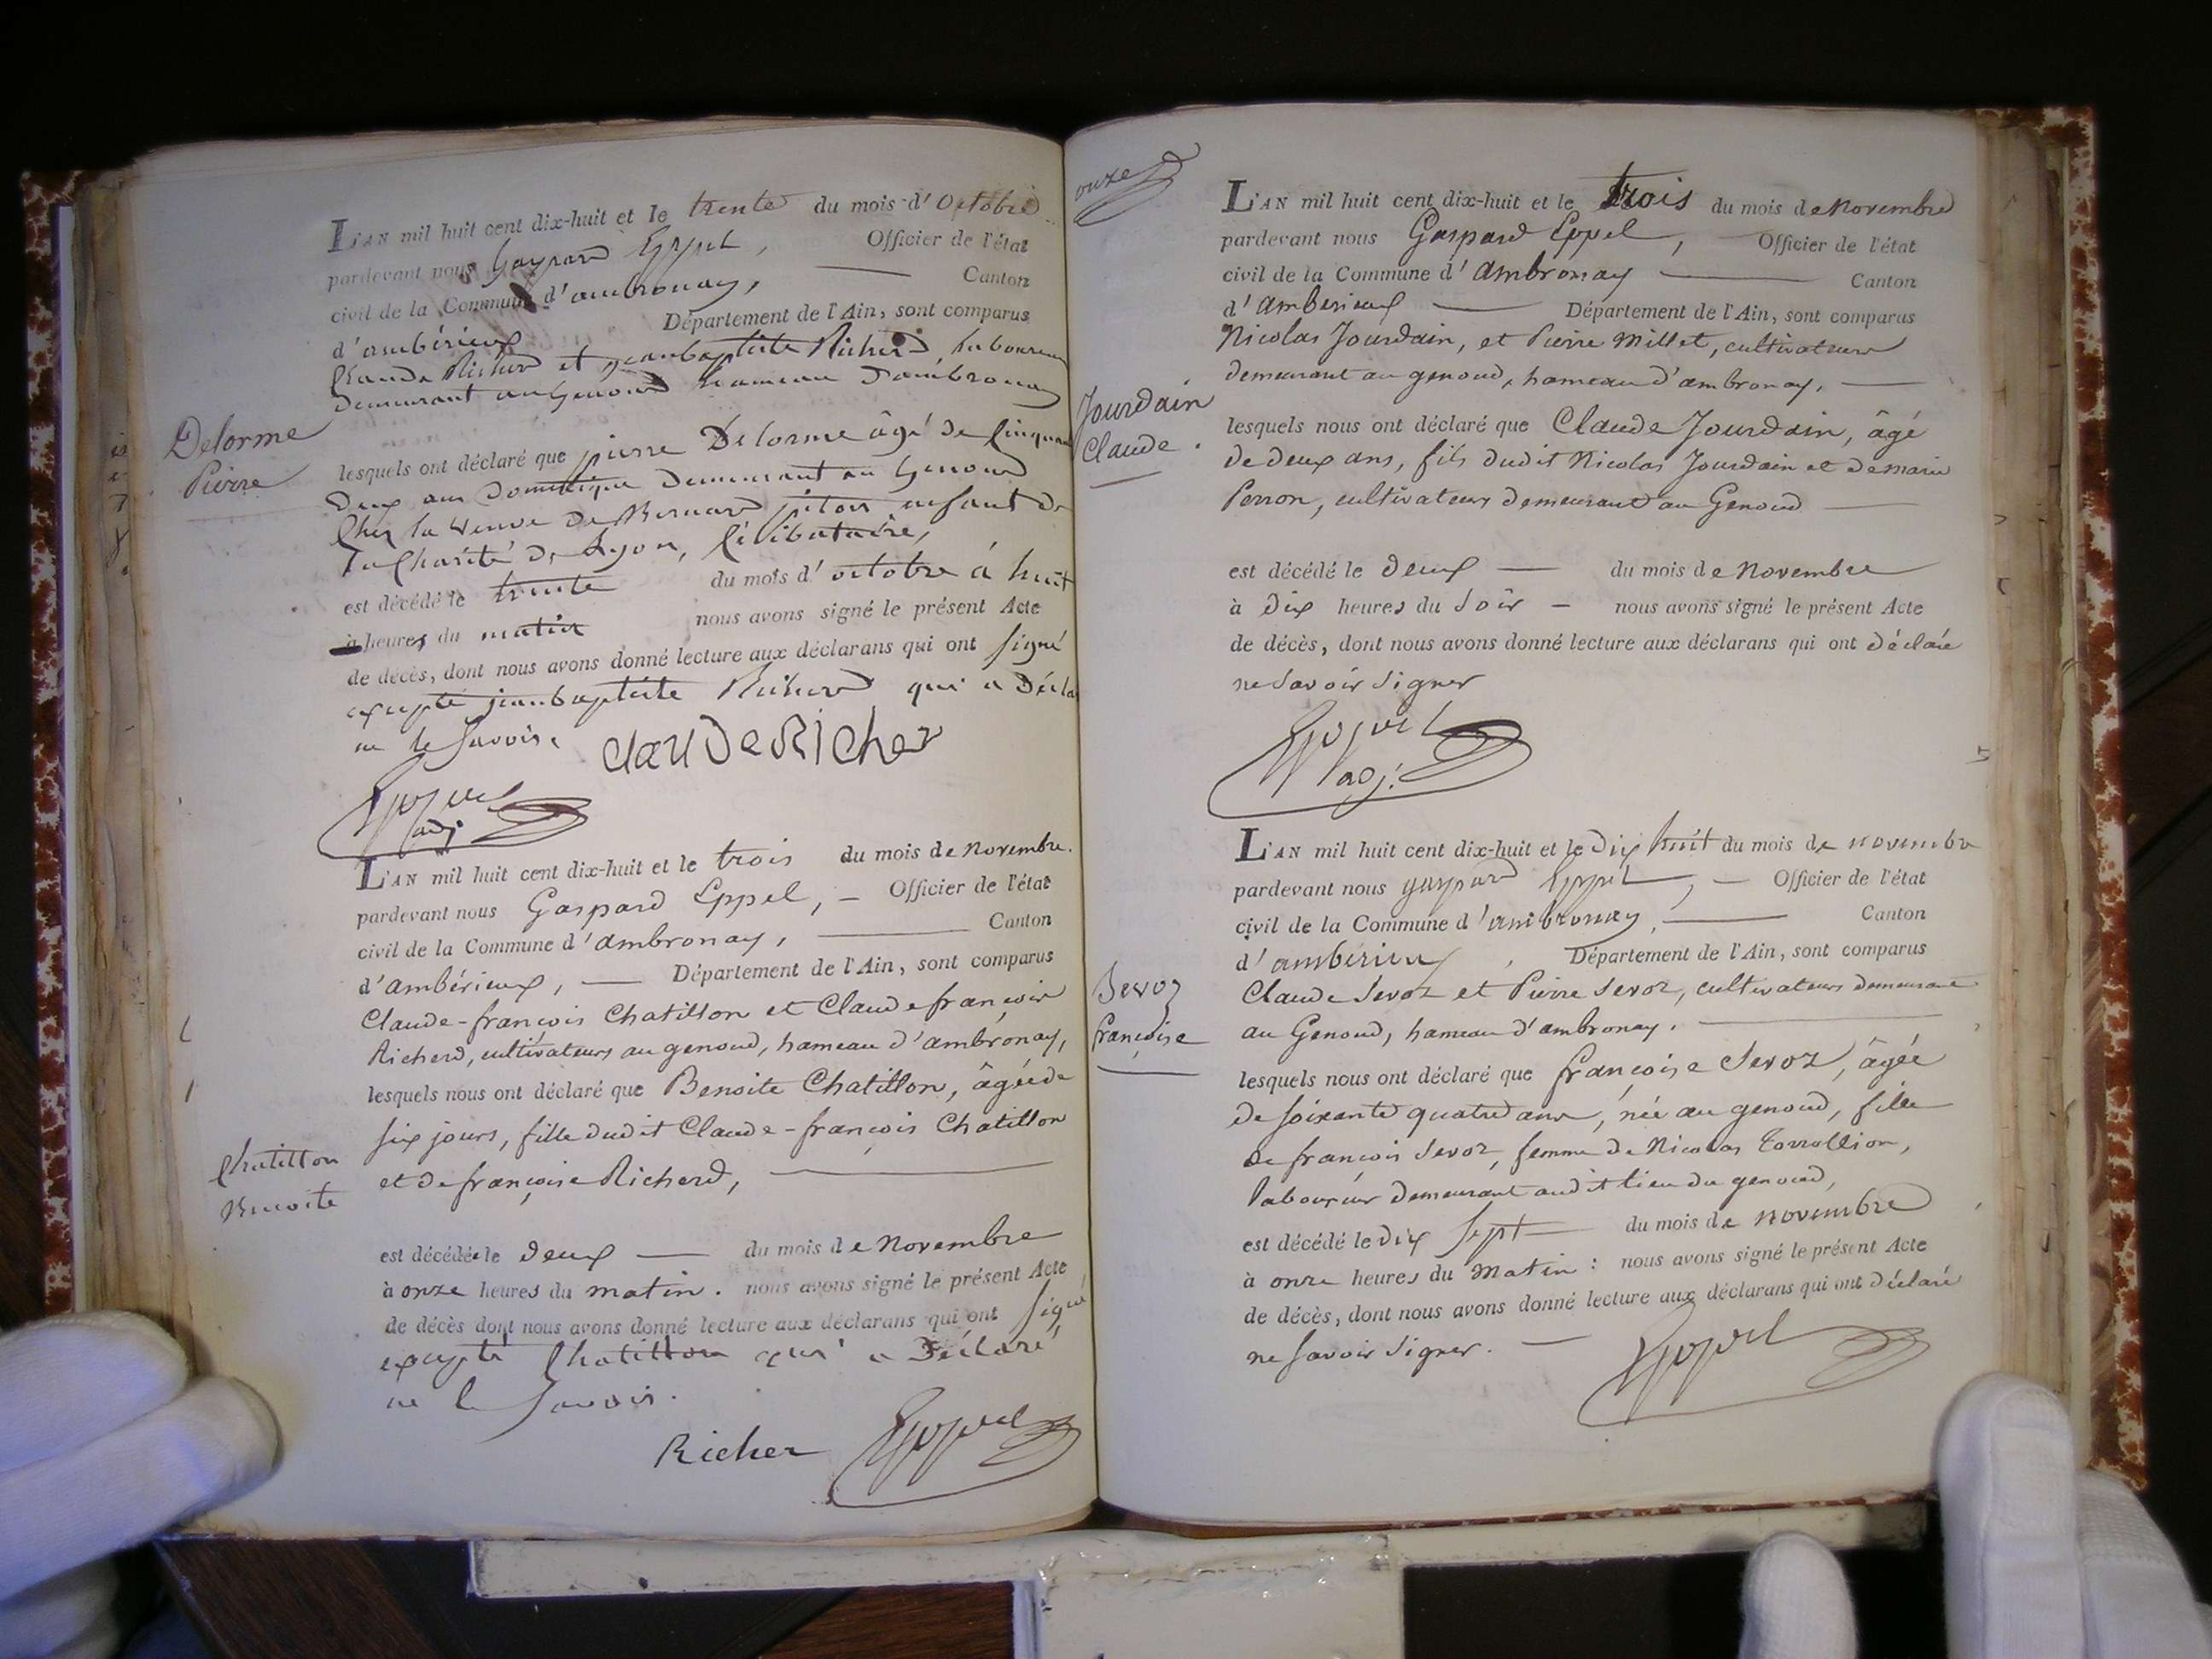 L'AN mil huit cent dix-huit et le trente du mois d'Octobre
pardevant nous Gaspard Eppel, Officier de l'état
civil de la Commune d'ambronay, Canton
d'ambérieux Département de l'Ain, sont comparus
Claude Richerd et jeanbaptiste Richerd, laboureurs
demeurant au genoud hameau d'ambronay
Delorme
Pierre
lesquels ont déclaré que pierre Delorme âgé de Cinquante
Deux ans Domestique Demeurant au Genoud
Chez la veuve De Bernard pitou enfant de
La Charité de Lyon, Célibataire,
est décédé le trente du mois d'octobre à huit
à heures du matin nous avons signé le présent Acte
de décès, dont nous avons donné lecture aux déclarans qui ont signé
excepté jeanbaptiste Richerd qui a Décla
ne le Savoir.
Claude Richer
Eppel
adj.
L'AN mil huit cent dix-huit et le trois du mois de novembre.
pardevant nous Gaspard Eppel, Officier de l'état
civil de la Commune d'ambronay, Canton
d'ambérieux, Département de l'Ain, sont comparus
Claude-françois Chatillon et Claude françois
Richerd, cultivateurs au genoud, hameau d'ambronay,
lesquels nous ont déclaré que Benoite Chatillon, âgée de
six jours, fille dudit Claude-françois Chatillon
et de françoise Richerd,
Chatillon
Benoite
est décédée le deux du mois de Novembre
à onze heures du matin. nous avons signé le présent Acte
de décès dont nous avons donné lecture aux déclarans qui ont signé
excepté Chatillon qui a Déclaré
ne le Savoir.
Richer Eppel
onze
L'AN mil huit cent dix-huit et le trois du mois de novembre
pardevant nous Gaspard Eppel, Officier de l'état
civil de la Commune d'Ambronay Canton
d'Ambérieux Département de l'Ain, sont comparus
Nicolas Jourdain, et Pierre Millet, cultivateurs
demeurant au genoud, hameau d'ambronay.
Jourdain
Claude.
lesquels nous ont déclaré que Claude Jourdain, âgé
de deux ans, fils dudit Nicolas Jourdain et de marie
Perron, cultivateurs demeurant au Genoud
est décédé le deux du mois de Novembre
à Dix heures du Soir nous avons signé le présent Acte
de décès, dont nous avons donné lecture aux déclarans qui ont déclaré
ne savoir signer
Eppel
adj.
L'AN mil huit cent dix-huit et le Dix huit du mois de novembre
pardevant nous gaspard Eppel, Officier de l'état
civil de la Commune d'ambronay, Canton
d'ambérieux, Département de l'Ain, sont comparus
Claude Sevoz et Pierre Sevoz, cultivateurs demeurant
au Genoud, hameau d'ambronay.
Sevoz
françoise
lesquels nous ont déclaré que françoise Sevoz, âgée
de soixante quatre ans, née au genoud, fille
de françois Sevoz, femme de Nicolas Torrollion,
laboureur demeurant audit lieu du genoud,
est décédé le Dix sept du mois de novembre
à onze heures du Matin: nous avons signé le présent Acte
de décès, dont nous avons donné lecture aux déclarans qui ont déclaré
ne savoir signer.
Eppel